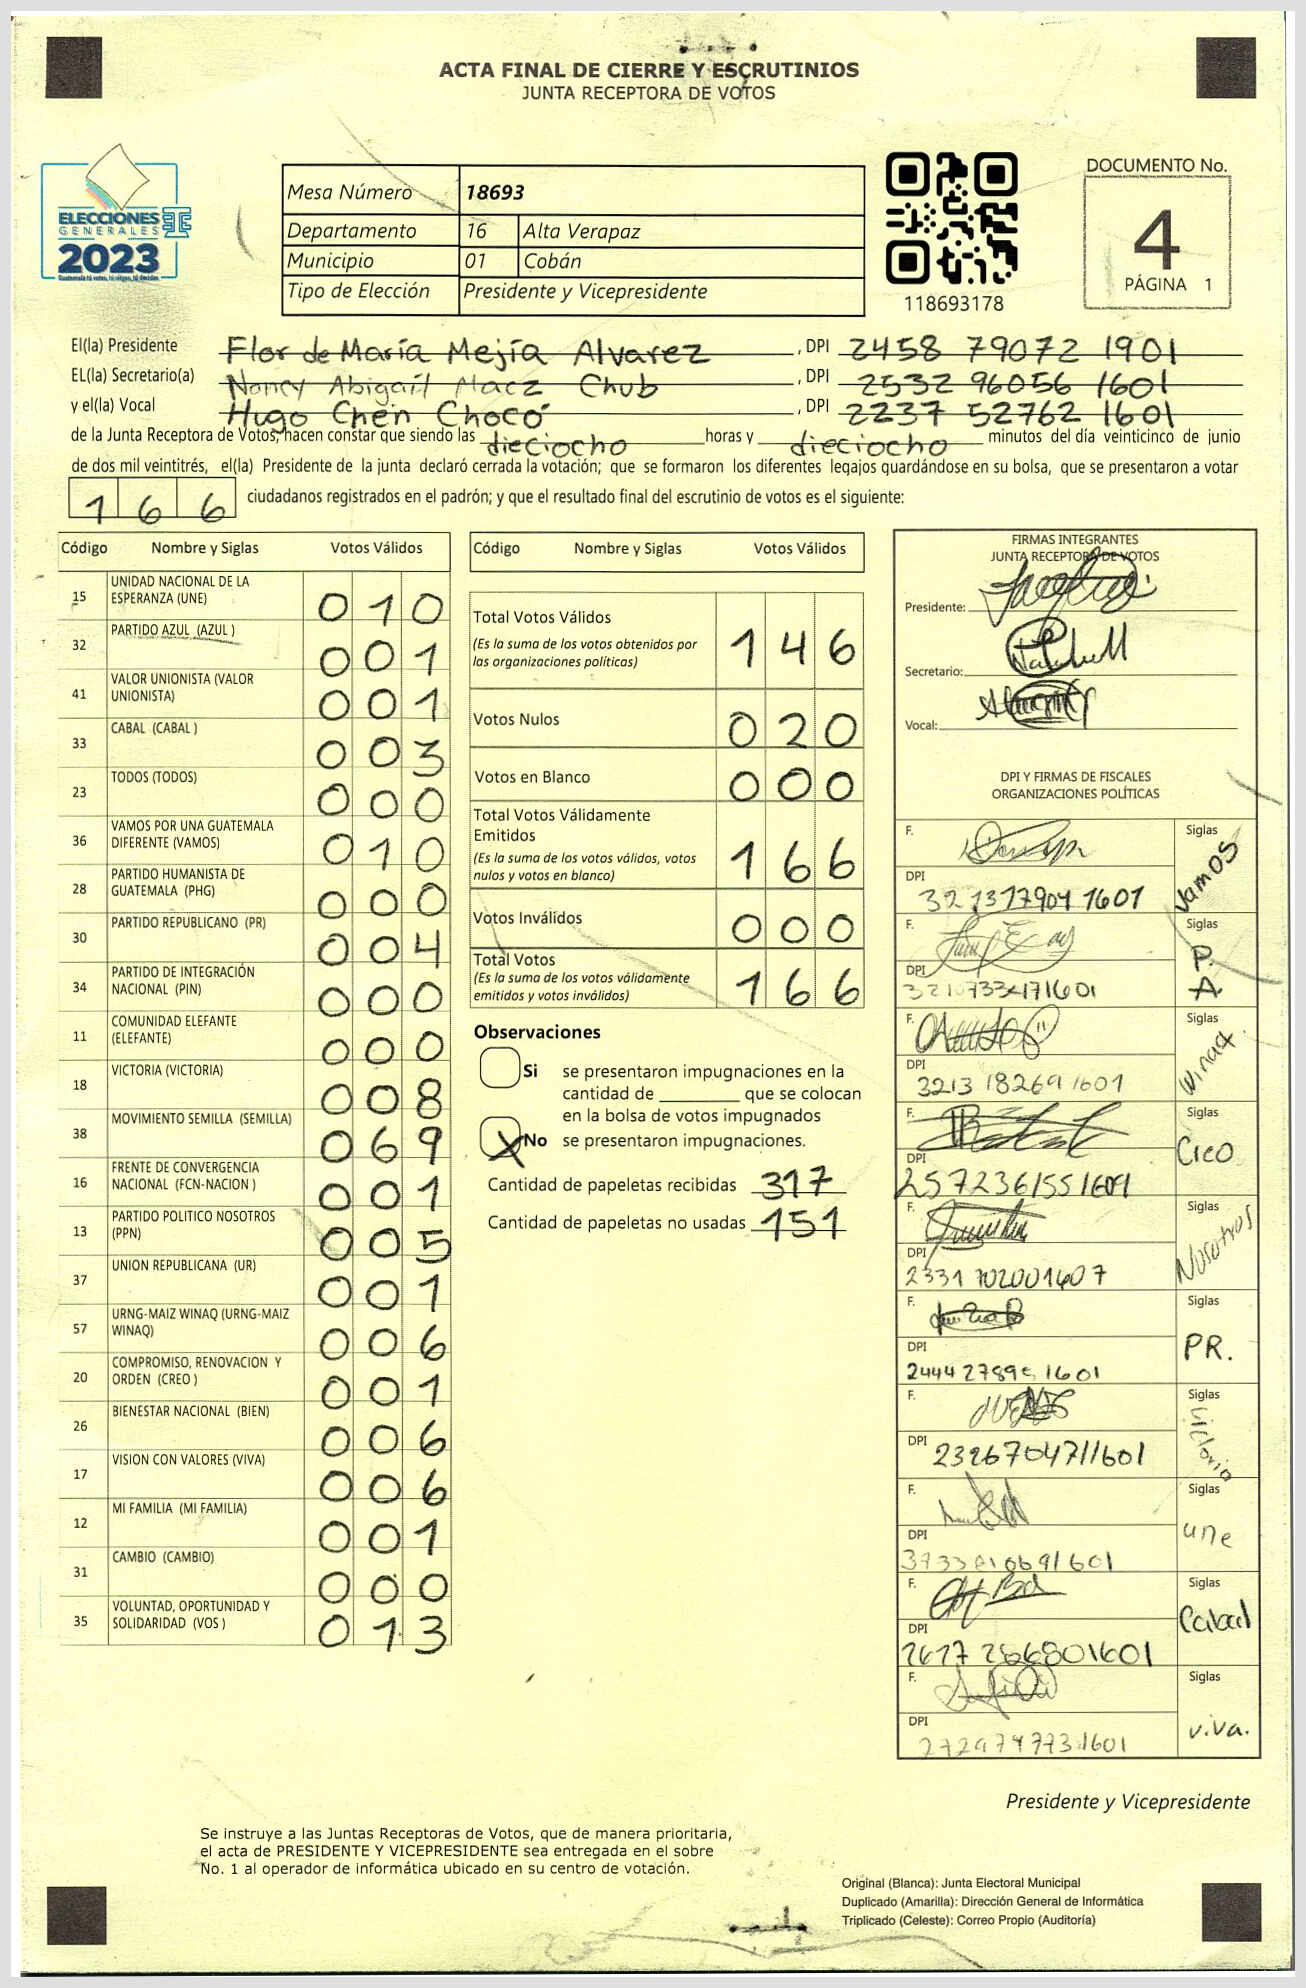 ACTA FINAL DE CIERRE Y ESCRUTINIOS
JUNTA RECEPTORA DE VOTOS
ELECCIONES
GENERALES
2023
Mesa Número 18693
Departamento 16 Alta Verapaz
Municipio 01 Cobán
Tipo de Elección Presidente y Vicepresidente
118693178
DOCUMENTO No.
4
PÁGINA 1
El(la) Presidente Flor de María Mejía Alvarez, DPI 2458 79072 1901
EL(la) Secretario(a) Nancy Abigaíl Macz Chub, DPI 2532 96056 1601
y el(la) Vocal Hugo Chen Chocó, DPI 2237 52762 1601
de la Junta Receptora de Votos, hacen constar que siendo las dieciocho horas y dieciocho minutos del día veinticinco de junio
de dos mil veintitrés, el(la) Presidente de la junta declaró cerrada la votación; que se formaron los diferentes legajos guardándose en su bolsa, que se presentaron a votar
166 ciudadanos registrados en el padrón; y que el resultado final del escrutinio de votos es el siguiente:
Código Nombre y Siglas Votos Válidos
15 UNIDAD NACIONAL DE LA ESPERANZA (UNE) 010
32 PARTIDO AZUL (AZUL ) 001
41 VALOR UNIONISTA (VALOR UNIONISTA) 001
33 CABAL (CABAL ) 003
23 TODOS (TODOS) 000
36 VAMOS POR UNA GUATEMALA DIFERENTE (VAMOS) 010
28 PARTIDO HUMANISTA DE GUATEMALA (PHG) 000
30 PARTIDO REPUBLICANO (PR) 004
34 PARTIDO DE INTEGRACIÓN NACIONAL (PIN) 000
11 COMUNIDAD ELEFANTE (ELEFANTE) 000
18 VICTORIA (VICTORIA) 008
38 MOVIMIENTO SEMILLA (SEMILLA) 069
16 FRENTE DE CONVERGENCIA NACIONAL (FCN-NACION ) 001
13 PARTIDO POLITICO NOSOTROS (PPN) 005
37 UNION REPUBLICANA (UR) 001
57 URNG-MAIZ WINAQ (URNG-MAIZ WINAQ) 006
20 COMPROMISO, RENOVACION Y ORDEN (CREO ) 001
26 BIENESTAR NACIONAL (BIEN) 006
17 VISION CON VALORES (VIVA) 006
12 MI FAMILIA (MI FAMILIA) 001
31 CAMBIO (CAMBIO) 000
35 VOLUNTAD, OPORTUNIDAD Y SOLIDARIDAD (VOS ) 013
Código Nombre y Siglas Votos Válidos
Total Votos Válidos 146
(Es la suma de los votos obtenidos por
las organizaciones políticas)
Votos Nulos 020
Votos en Blanco 000
Total Votos Válidamente
Emitidos 166
(Es la suma de los votos válidos, votos
nulos y votos en blanco)
Votos Inválidos 000
Total Votos 166
(Es la suma de los votos válidamente
emitidos y votos inválidos)
Observaciones
Si se presentaron impugnaciones en la
cantidad de ________ que se colocan
en la bolsa de votos impugnados
X No se presentaron impugnaciones.
Cantidad de papeletas recibidas 317
Cantidad de papeletas no usadas 151
FIRMAS INTEGRANTES
JUNTA RECEPTORA DE VOTOS
Presidente:
Secretario:
Vocal:
DPI Y FIRMAS DE FISCALES
ORGANIZACIONES POLÍTICAS
F. Siglas Vamos
DPI
F. Siglas P.A
DPI
F. Siglas Winaq
DPI 3213 18269 1601
F. Siglas Creo
DPI 2572361551601
F. Siglas Nosotros
DPI
F. Siglas PR.
DPI
F. Siglas Victoria
DPI 2326704711601
F. Siglas une
DPI
F. Siglas Cabal
DPI
F. Siglas viva.
DPI
Presidente y Vicepresidente
Se instruye a las Juntas Receptoras de Votos, que de manera prioritaria,
el acta de PRESIDENTE Y VICEPRESIDENTE sea entregada en el sobre
No. 1 al operador de informática ubicado en su centro de votación.
Original (Blanca): Junta Electoral Municipal
Duplicado (Amarilla): Dirección General de Informática
Triplicado (Celeste): Correo Propio (Auditoría)